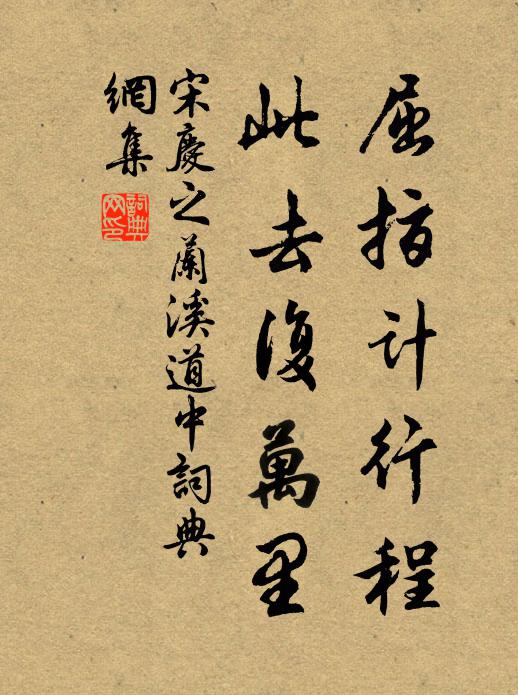 屈指計行程
此去復萬里
宋慶之蘭溪道中詞典
網集
詞典
网印